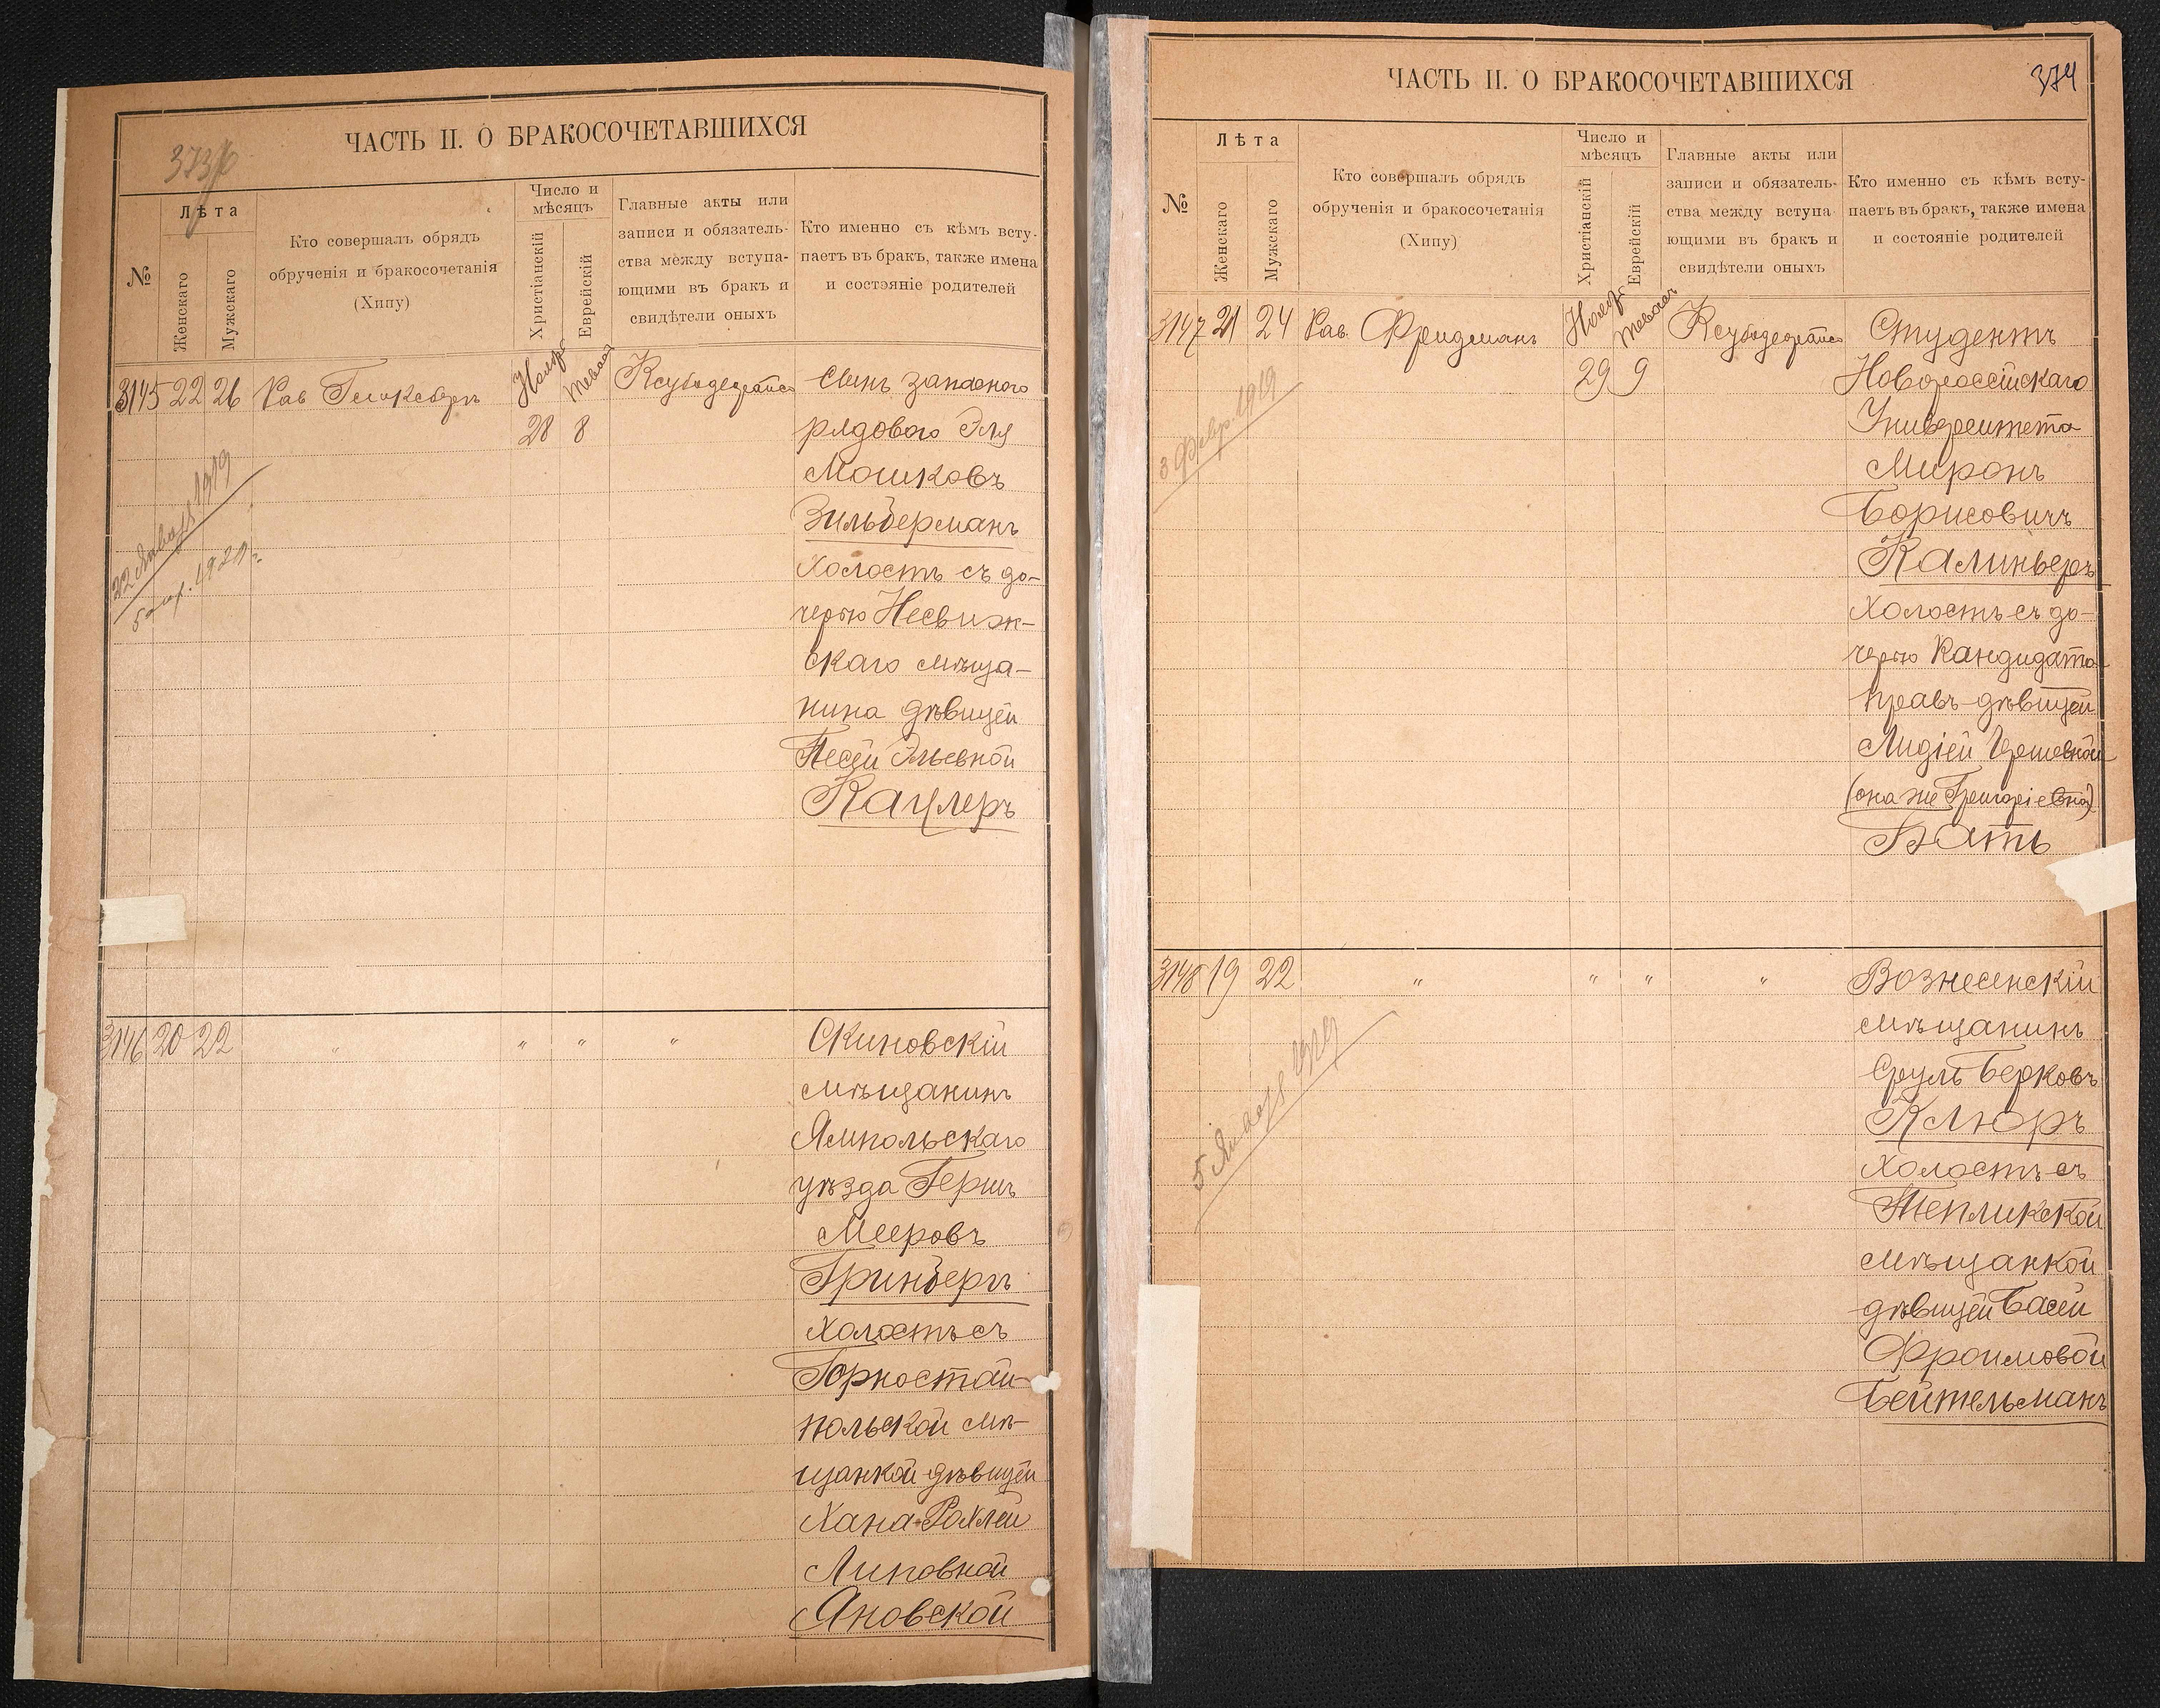 373/б
ЧАСТЬ II. О БРАКОСОЧЕТАВШИХСЯ
№
Лѣта
Женскаго
Мужскаго
Кто совершалъ обрядъ
обрученія и бракосочетанія
(Хипу)
Число и
мѣсяцъ
Христіанскій
Еврейскій
Главные акты или
записи и обязатель-
ства между вступа-
ющими въ бракъ и
свидѣтели оныхъ
Кто именно съ кѣмъ всту-
паетъ въ бракъ, также имена
и состояніе родителей
3145 22 26 Рав
28 8
Сынъ запасного
рядового Эля
Мошковъ
Зильберманъ
холостъ съ до-
черью Несвиж-
скаго мѣща-
нина дѣвицей
Песей Эльевной
Кацлеръ
22 Января 1919
3146 20 22 " " " "
Скиновскій
мѣщанинъ
Ямпольскаго
уѣзда Гершъ
Мееровъ
Гринбергъ
холостъ съ
Горностай-
польской мѣ-
щанкой дѣвицей
Хана-Рохлей
Липовной
Яновской
374
ЧАСТЬ II. О БРАКОСОЧЕТАВШИХСЯ
№
Лѣта
Женскаго
Мужскаго
Кто совершалъ обрядъ
обрученія и бракосочетанія
(Хипу)
Число и
мѣсяцъ
Христіанскій
Еврейскій
Главные акты или
записи и обязатель-
ства между вступа-
ющими въ бракъ и
свидѣтели оныхъ
Кто именно съ кѣмъ всту-
паетъ въ бракъ, также имена
и состояніе родителей
3147 21 24 Рав. Фридманъ
29 9
Студентъ
Новороссійскаго
Университета
Миронъ
Борисовичъ
Калиньеръ
холостъ съ до-
черью Кандидата
правъ-дѣвицей
Лидіей Гершевной
(она же Григоріевна)
Бать
3 Февр. 1919
3148 19 22 " " " "
Вознесенскій
мѣщанинъ
Сруль Берковъ
Клюръ
холостъ съ
Тепликской
мѣщанкой
дѣвицей Басей
Фроимовой
Бейтельманъ
5 Января 1919